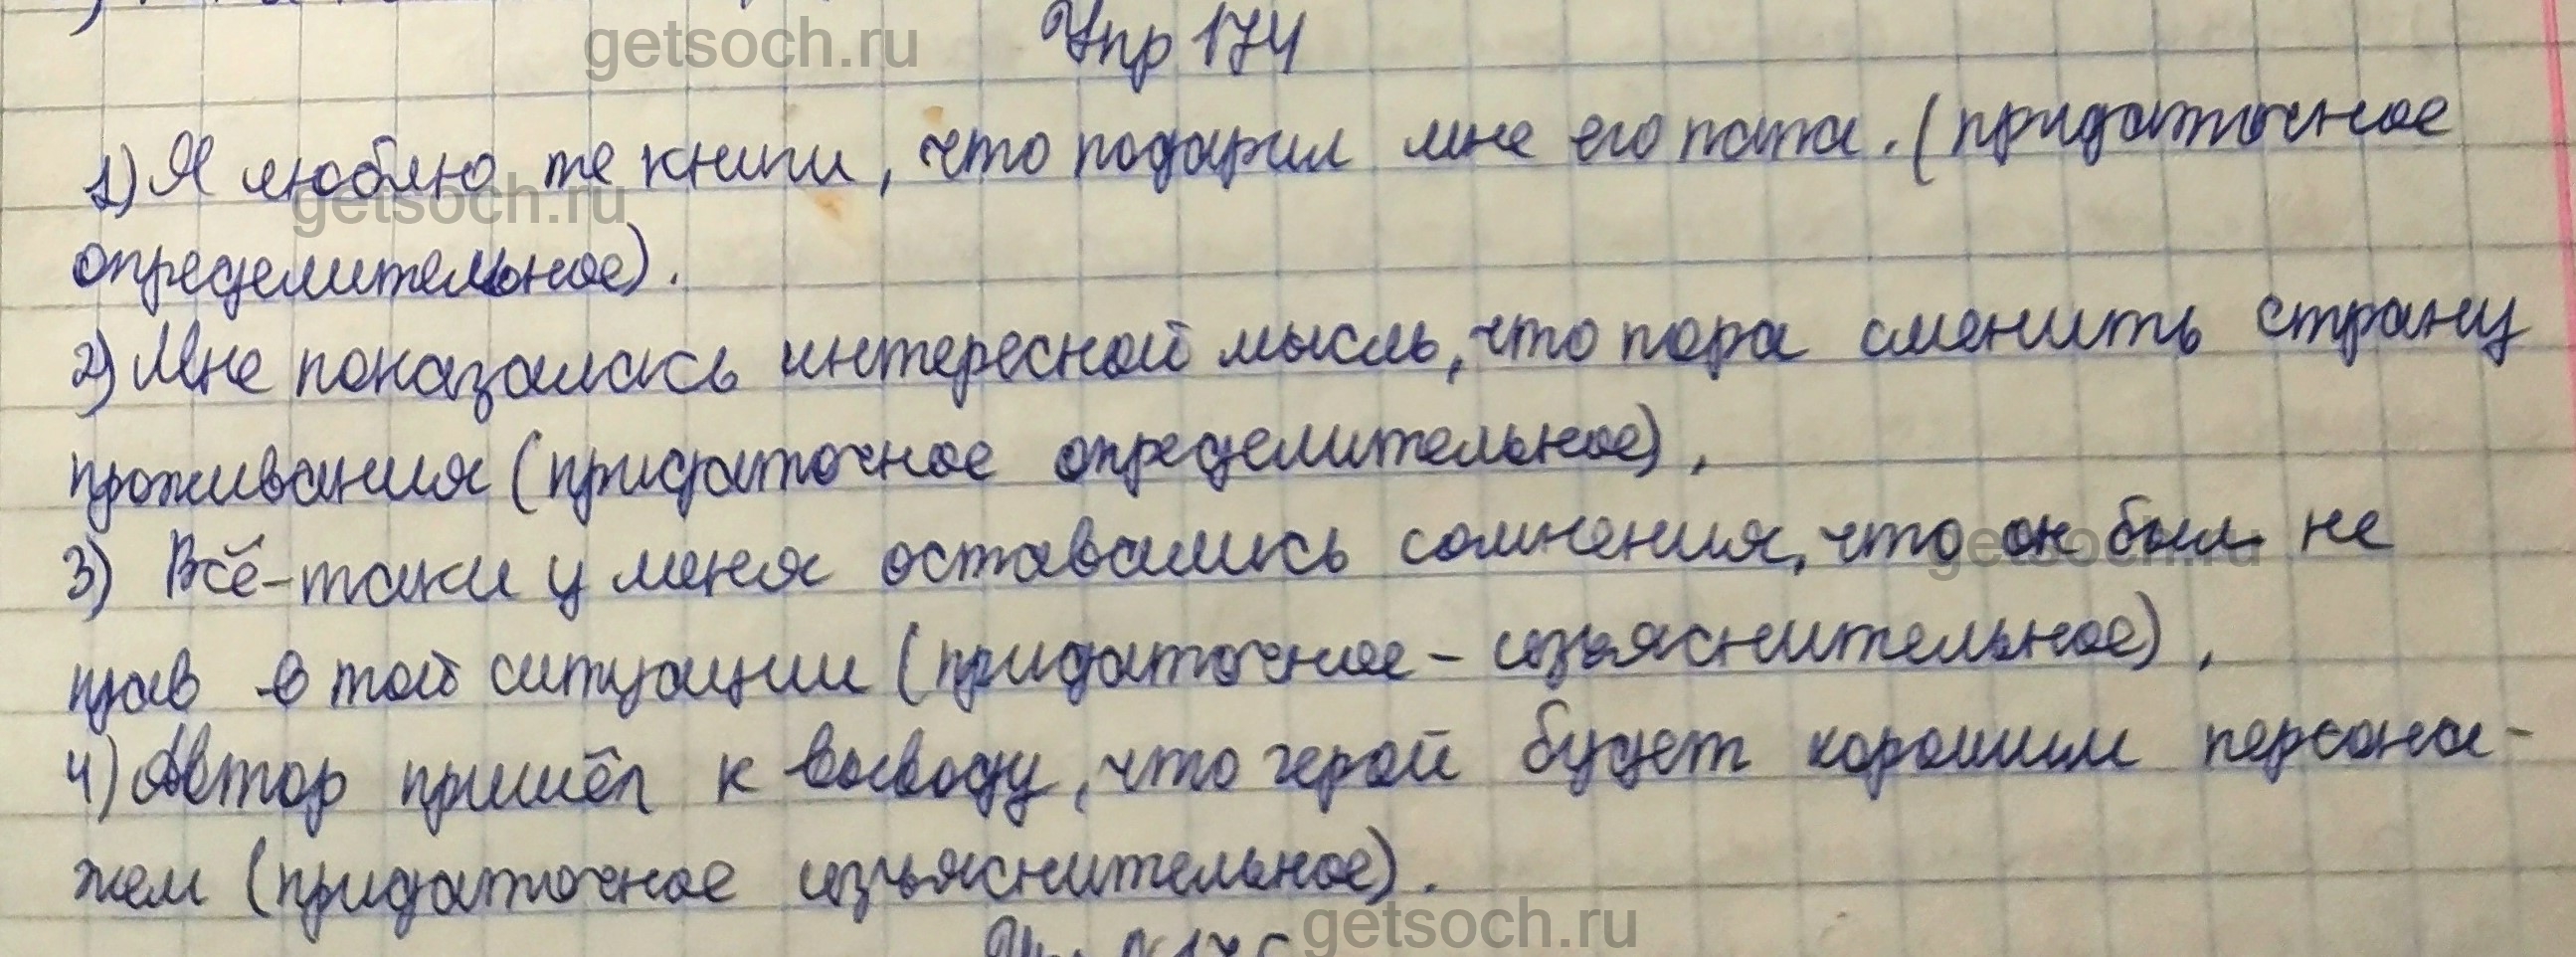 getsoch.ru
Упр 174
1) Я люблю те книги, что подарил мне его папа. (придаточное
getsoch.ru
определительное).
2) Мне показалась интересной мысль, что пора сменить страну
проживания (придаточное определительное).
3) Всё-таки у меня оставались сомнения, что он был не
getsoch.ru
прав в той ситуации (придаточное - изъяснительное).
4) Автор пришёл к выводу, что герой будет хорошим персона-
жем (придаточное изъяснительное).
getsoch.ru